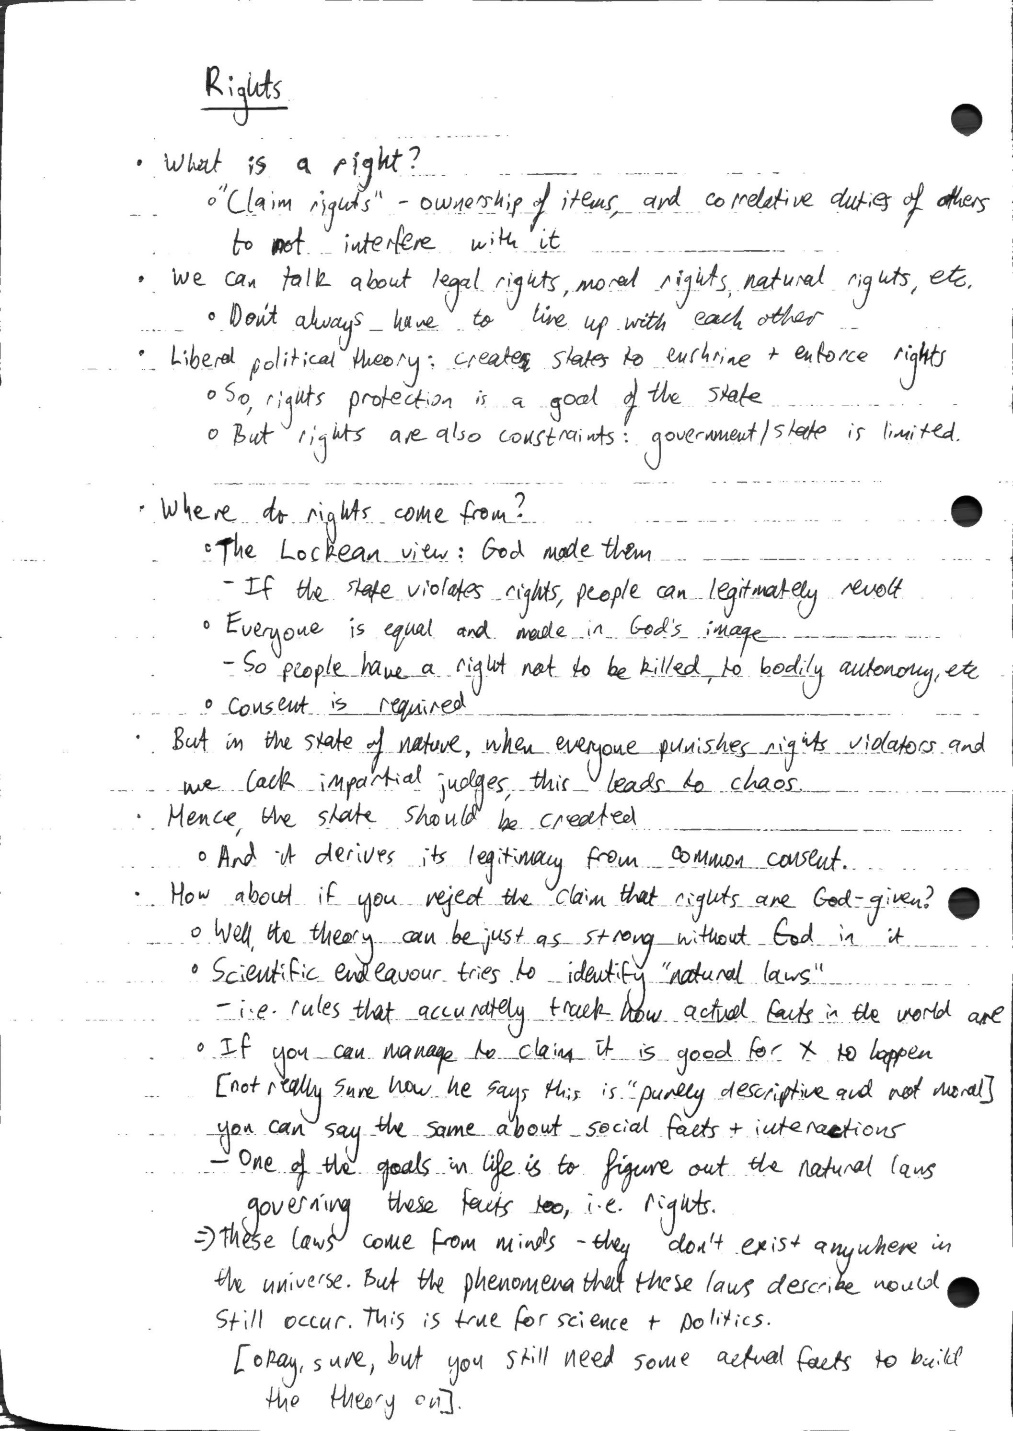 Rights
• What is a right?
○ "Claim rights" - ownership of items, and correlative duties of others
to not interfere with it
• We can talk about legal rights, moral rights, natural rights, etc.
○ Don't always have to line up with each other
• Liberal political theory: creates states to enshrine + enforce rights
○ So, rights protection is a goal of the state
○ But rights are also constraints: government/state is limited.
• Where do rights come from?
○ The Lockean view: God made them
- If the state violates rights, people can legitmately revolt
○ Everyone is equal and made in God's image
- So people have a right not to be killed, to bodily autonomy, etc
○ Consent is required
• But in the state of nature, when everyone punishes rights violators and
we lack impartial judges, this leads to chaos.
• Hence, the state should be created
○ And it derives its legitimacy from common consent.
• How about if you reject the claim that rights are God-given?
○ Well, the theory can be just as strong without God in it
○ Scientific endeavour tries to identify "natural laws"
- i.e. rules that accurately track how actual facts in the world are
○ If you can manage to claim it is good for X to happen
[not really sure how he says this is "purely descriptive and not moral]
you can say the same about social facts + interactions
- One of the goals in life is to figure out the natural laws
governing these facts too, i.e. rights.
⇒ These laws come from minds - they don't exist anywhere in
the universe. But the phenomena that these laws describe would
still occur. This is true for science + politics.
[okay, sure, but you still need some actual facts to build
the theory on].